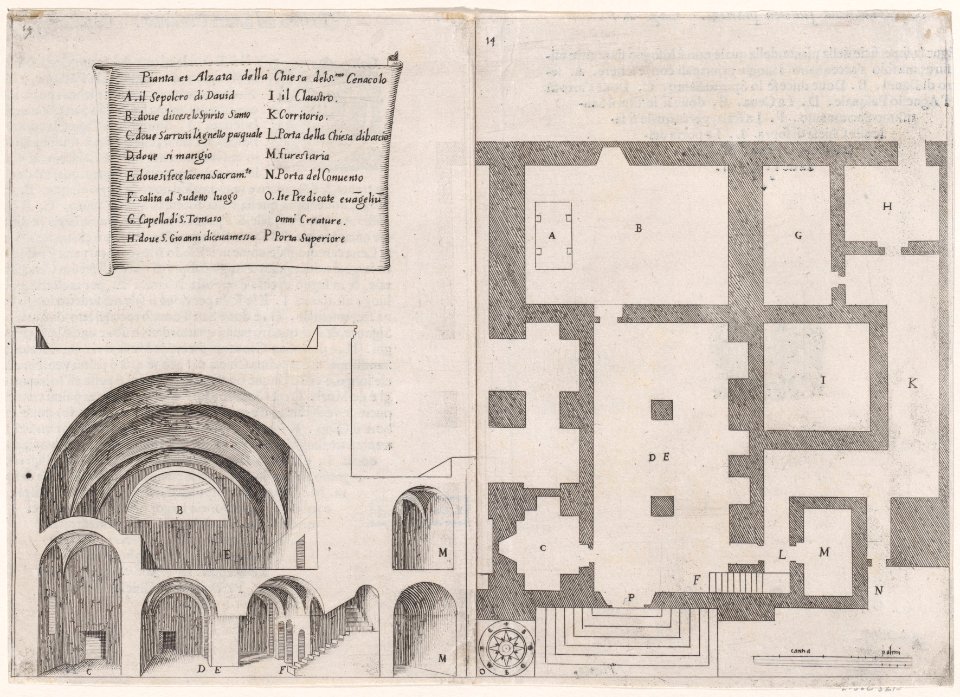 14
Pianta et Alzata della Chiesa del s.mo Cenacolo
A. il Sepolcro di David
B. doue discese lo Spirito Santo
C. doue S'arrosti l'Agnello pasquale
D. doue si mangio
E. doue si fece la cena Sacram.te
F. salita al sudetto luogo
G. Capella di S. Tomaso
H. doue S. Giouanni diceua messa
I. il Claustro.
K Corritorio.
L. Porta della Chiesa dibascio
M. furestaria
N. Porta del Conuento
O. Ite Predicate euāgeliū
omni Creature.
P Porta Superiore
B
E
M
C
D E
F
M
14
A
B
G
H
I
K
D E
C
L
M
F
N
P
O
canna
palmi